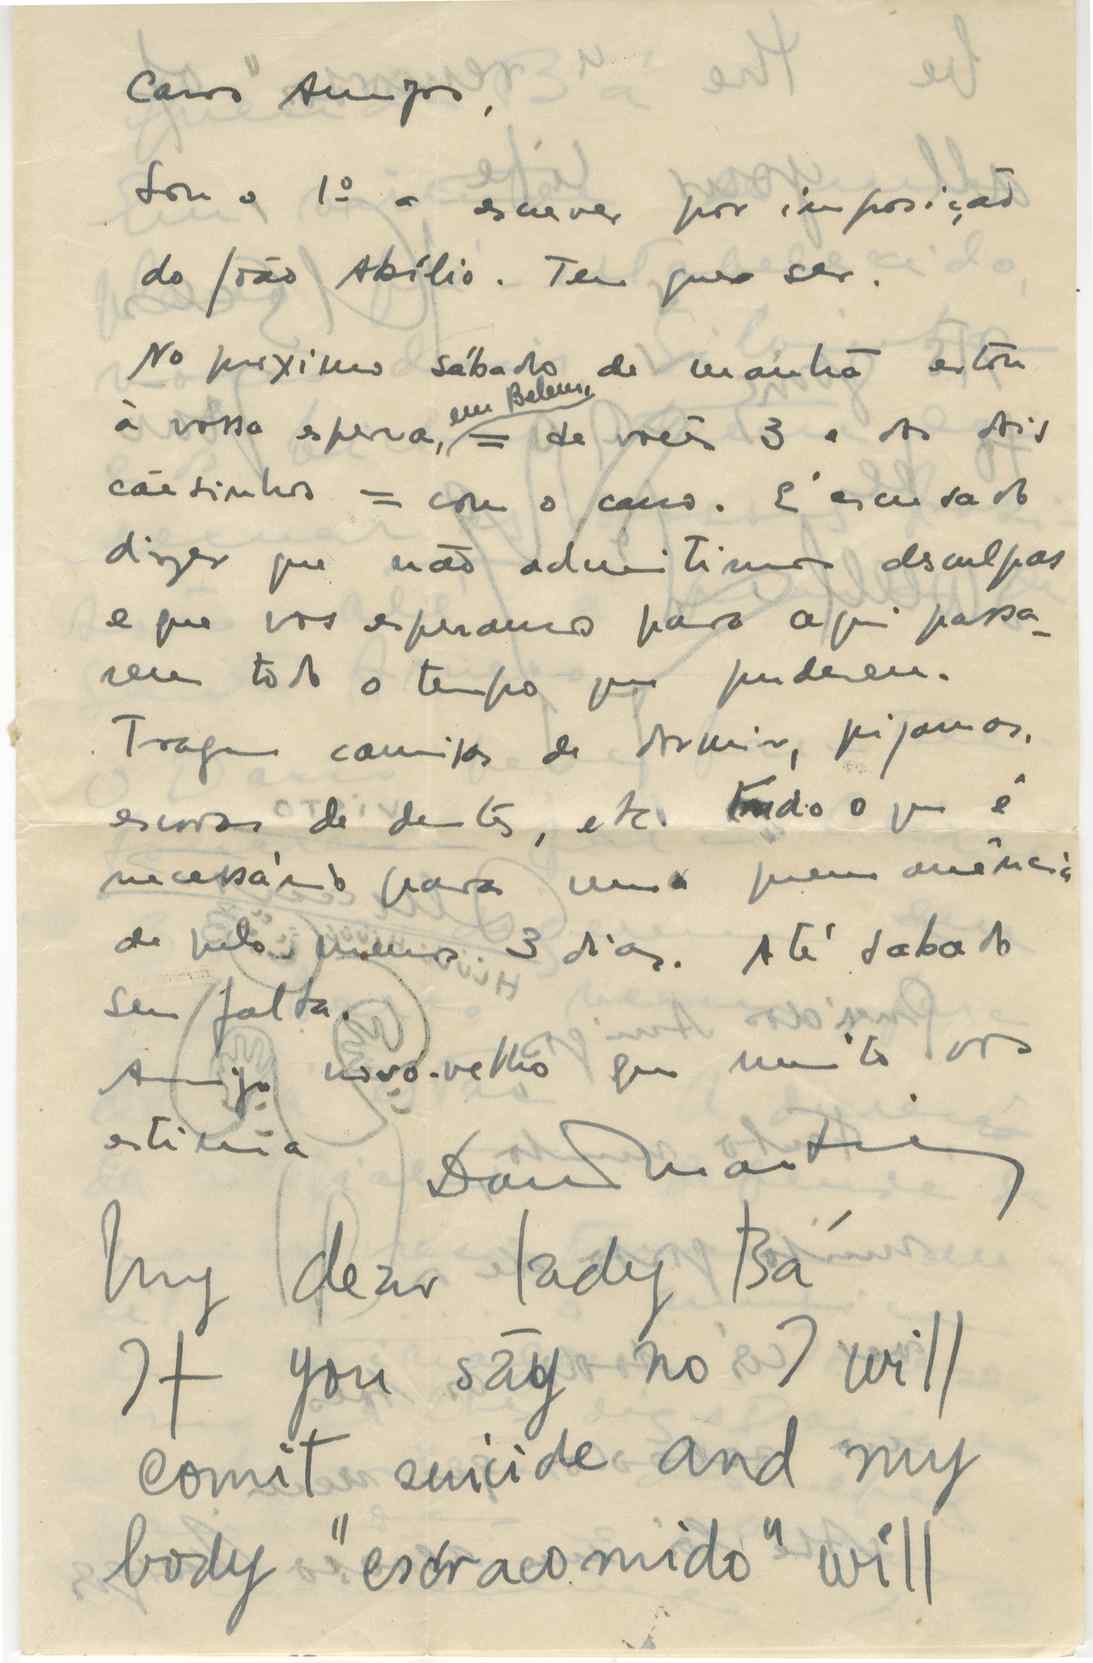 Caros Amigos,
Sou o 1º a escrever por imposição
do João Abílio. Tem que ser.
No próximo sábado de manhã estou
à vossa espera, em Belem, = de vocês 3 e dos dois
cãesinhos = com o carro. E' escusado
dizer que não admitimos desculpas
e que vos esperamos para aqui passa-
rem todo o tempo que puderem.
Tragam camisas de dormir, pijamas,
escovas de dentes, etc. tudo o que é
necessário para uma permanência
de pelo menos 3 dias. Até sabado
sem falta.
Amigo novo-velho que muito vos
estima
David Martins
My dear lady Bá
If you say no I will
comit suicide and my
body "esbracomido" will